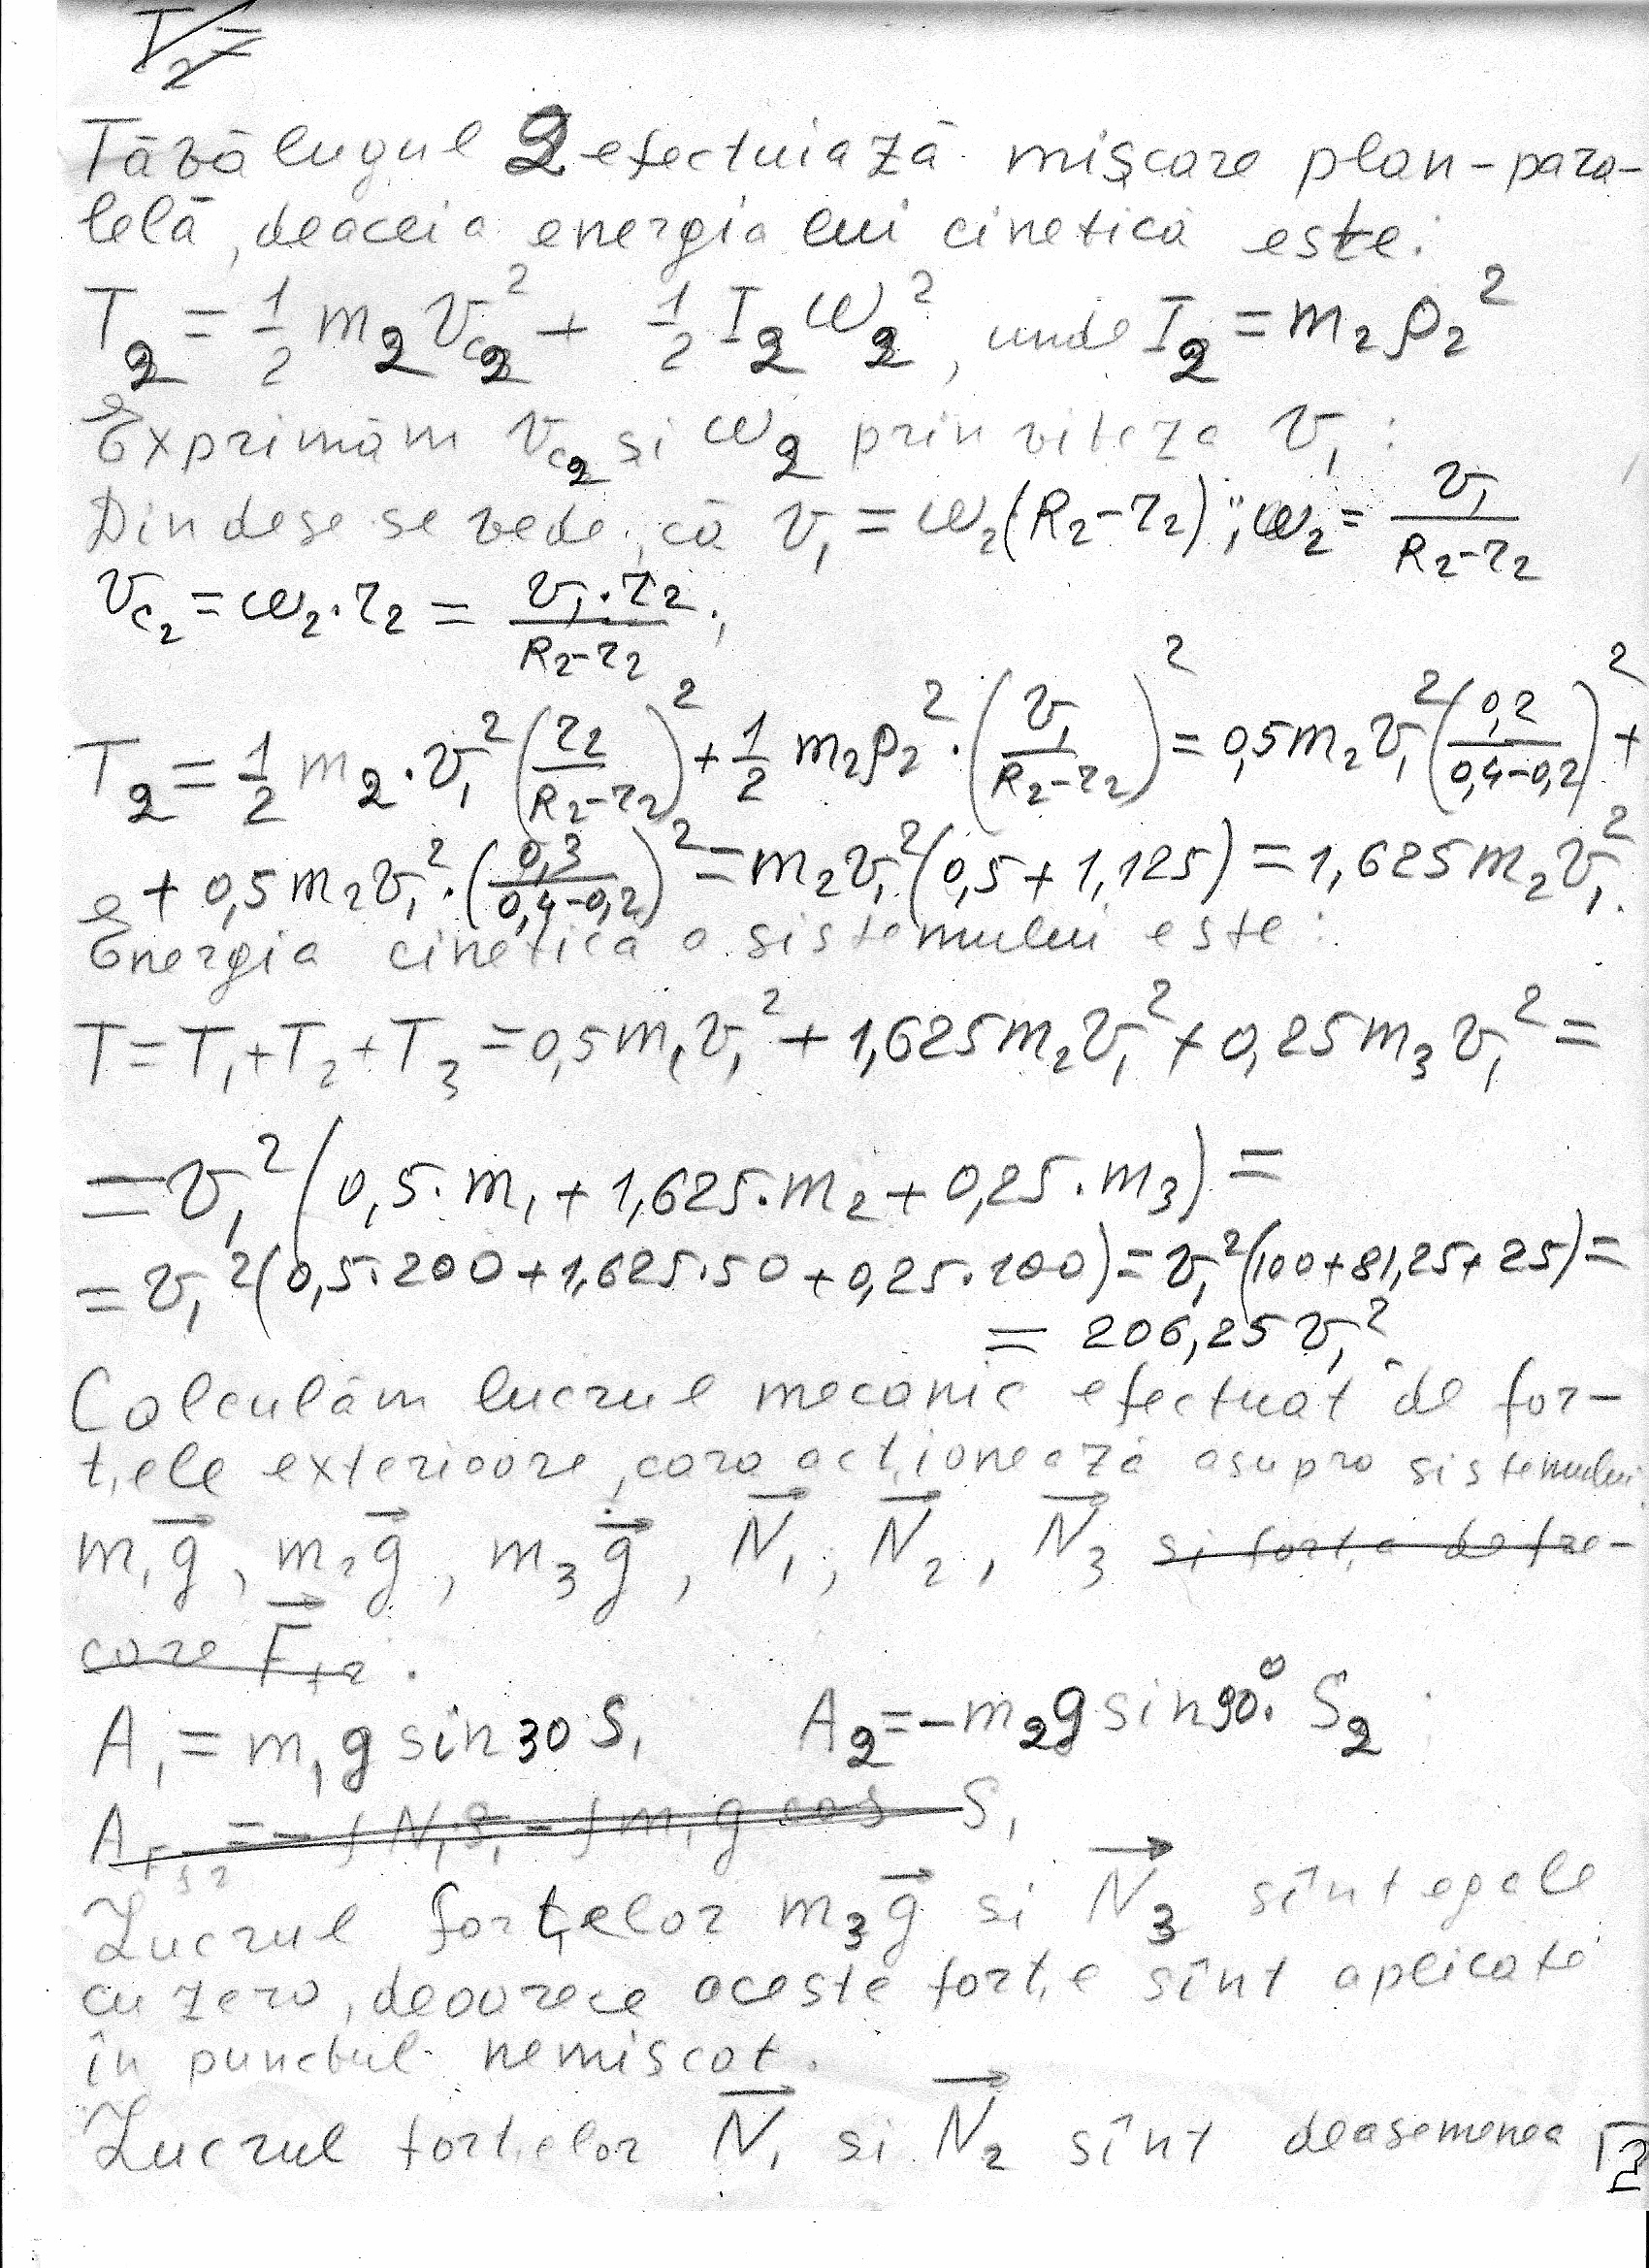 T₂=
Tăvălugul 2 efectuiază mișcare plan-para-
lelă, deaceia energia lui cinetică este:
T₂ = 1/2 m₂ v_c₂² + 1/2 I₂ ω₂², unde I₂ = m₂ρ₂²
Exprimăm v_c₂ și ω₂ prin viteza v₁:
Din dese se vede, că v₁ = ω₂(R₂-r₂); ω₂ = v₁/(R₂-r₂)
v_c₂ = ω₂·r₂ = v₁·r₂/(R₂-r₂);
T₂ = 1/2 m₂·v₁²(r₂/(R₂-r₂))² + 1/2 m₂ρ₂²·(v₁/(R₂-r₂))² = 0,5m₂v₁²(0,2/(0,4-0,2))² +
+ 0,5m₂v₁²·(0,3/(0,4-0,2))² = m₂v₁²(0,5+1,125) = 1,625m₂v₁².
Energia cinetică a sistemului este:
T = T₁+T₂+T₃ = 0,5m₁v₁² + 1,625m₂v₁² + 0,25m₃v₁² =
= v₁²(0,5·m₁ + 1,625·m₂ + 0,25·m₃) =
= v₁²(0,5·200+1,625·50+0,25·100) = v₁²(100+81,25+25) =
= 206,25v₁²
Calculăm lucrul mecanic efectuat de for-
țele exterioare, care acționează asupra sistemului
m₁g⃗, m₂g⃗, m₃g⃗, N⃗₁, N⃗₂, N⃗₃ si forța de fre-
care F⃗.
A₁ = m₁g sin30 S₁ A₂ = -m₂g sin90°. S₂
A = -fN₁S₁ = -fm₁g cos S₁
Lucrul forțelor m₃g⃗ si N⃗₃ sînt egale
cu zero, deoarece aceste forțe sînt aplicate
în punctul nemișcat.
Lucrul forțelor N⃗₁ si N⃗₂ sînt deasemenea
2